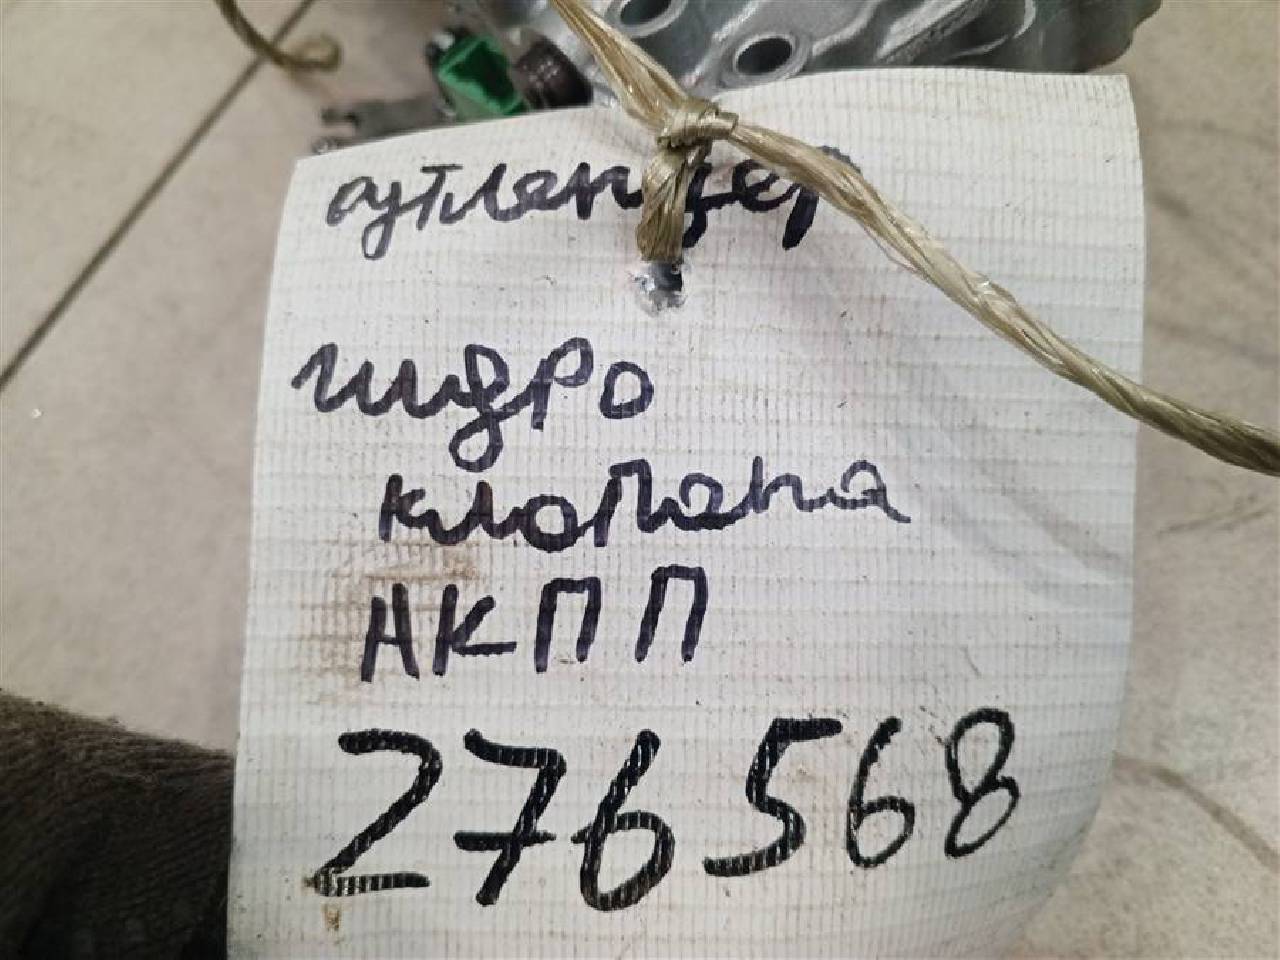 аутлендер
гидро
клопана
АКПП
276568